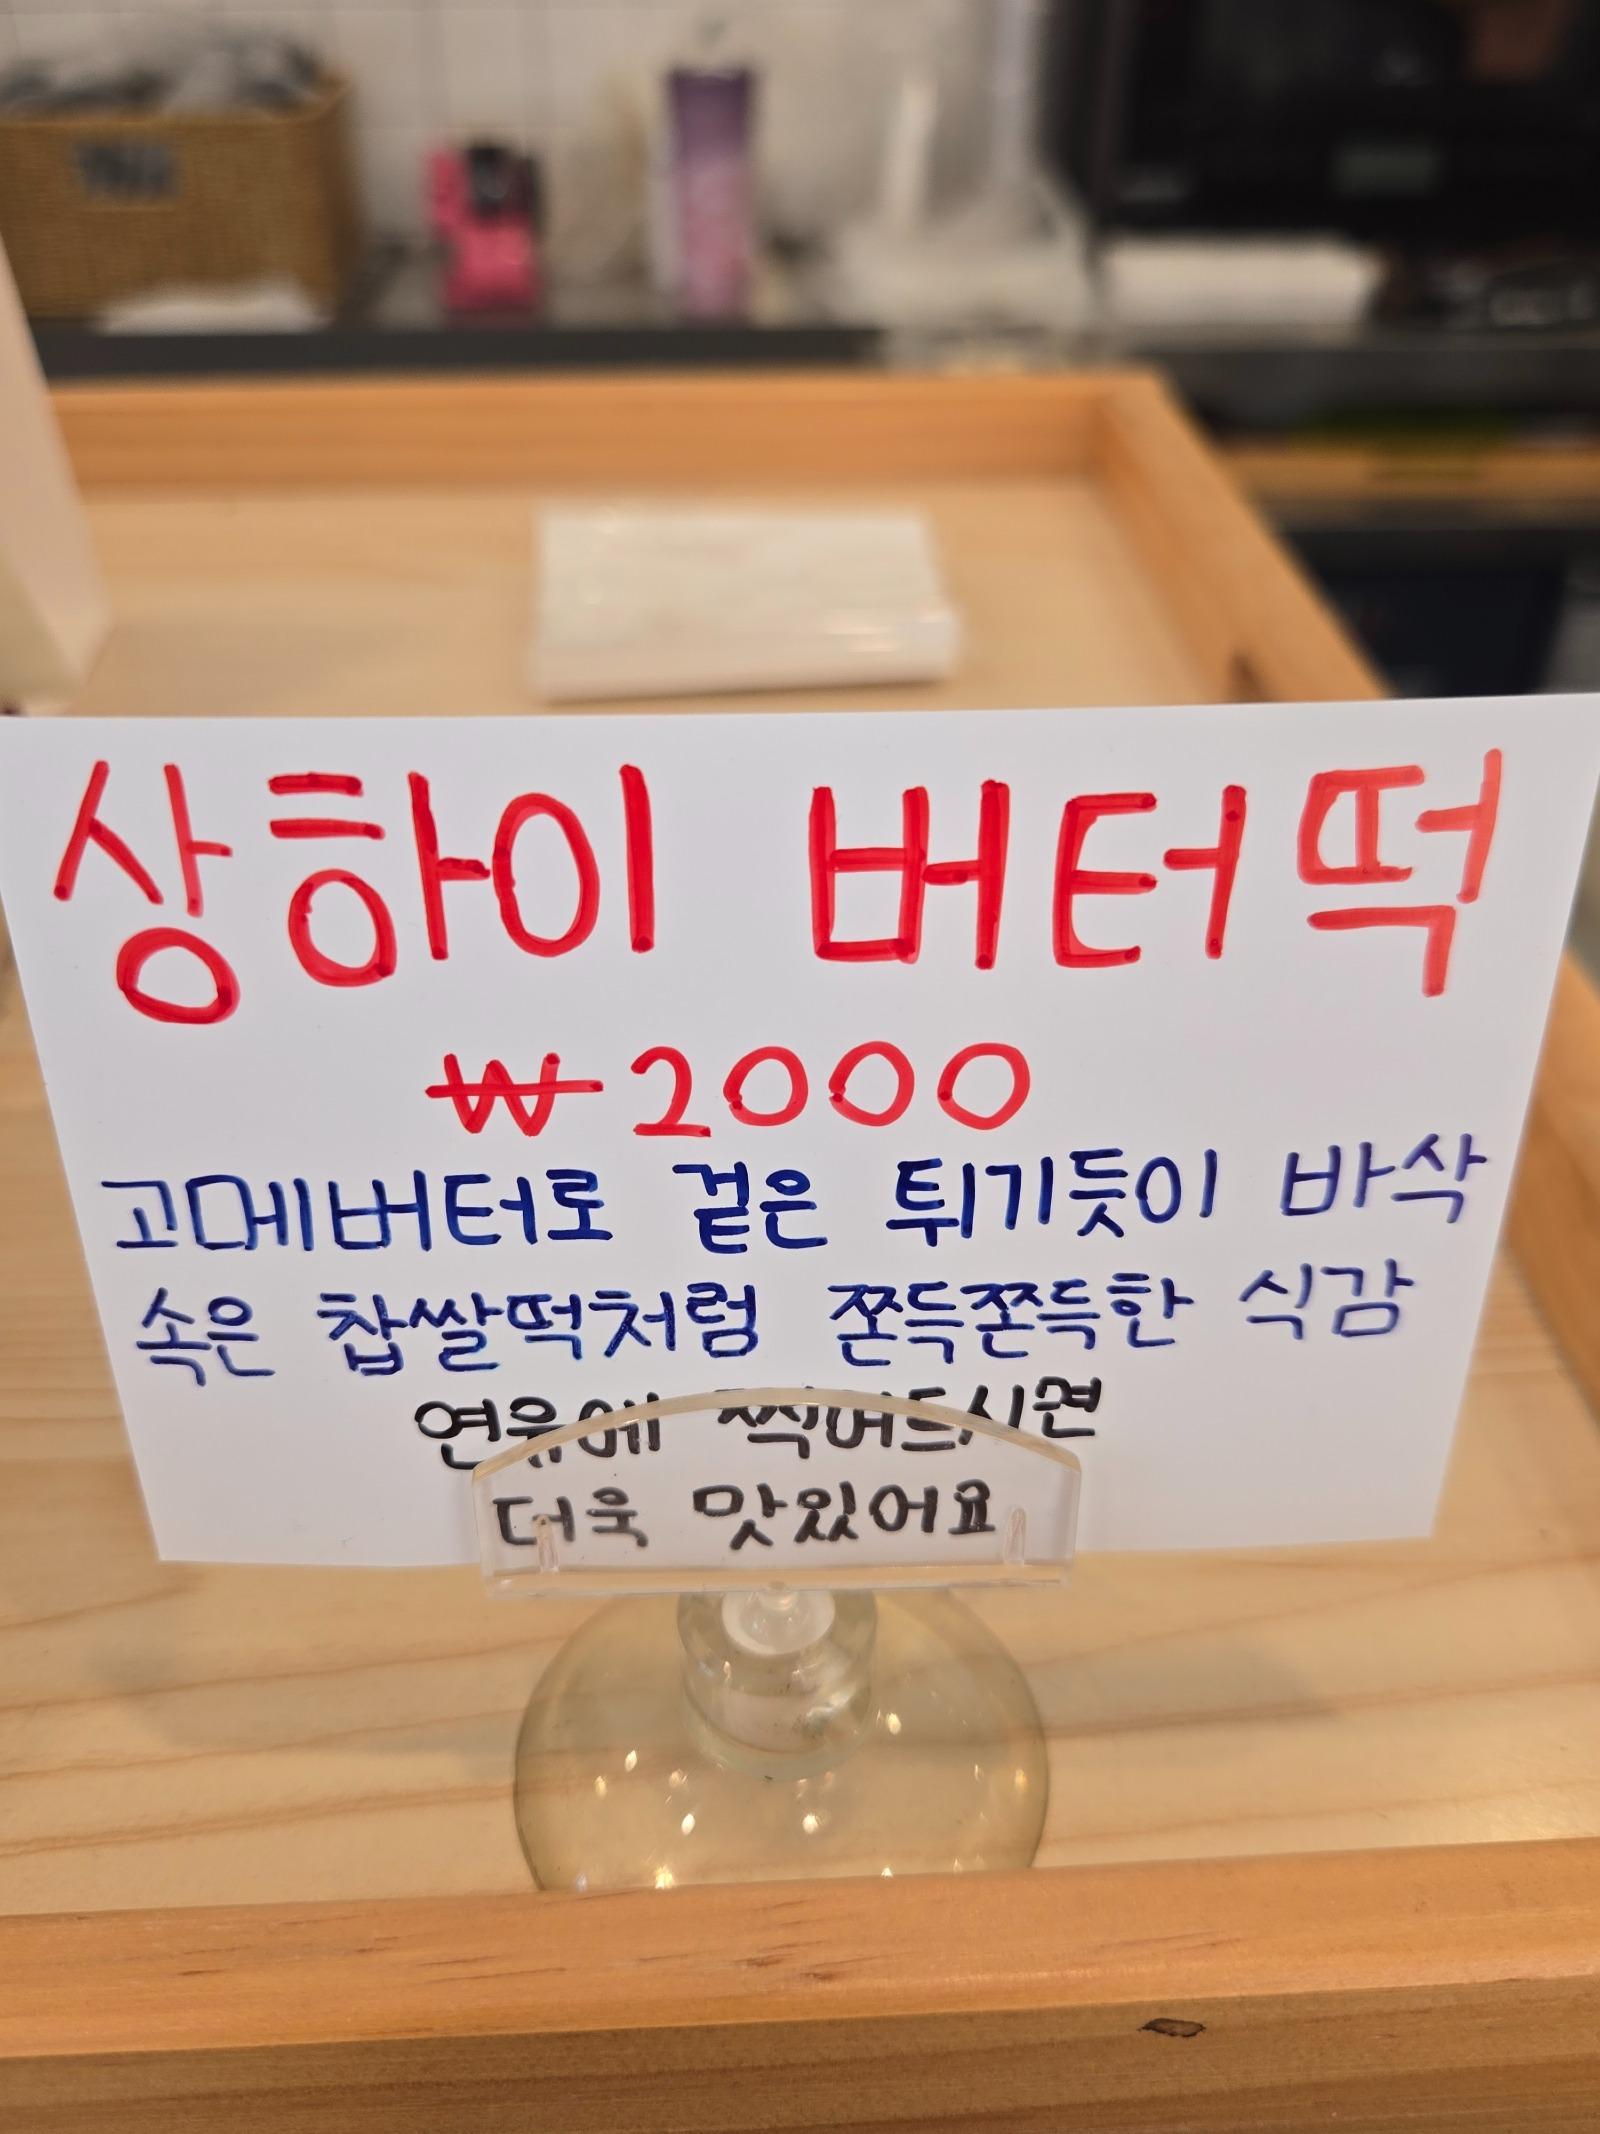 상하이 버터떡
₩2000
고메버터로 겉은 튀기듯이 바삭
속은 찹쌀떡처럼 쫀득쫀득한 식감
연유에 찍어드시면
더욱 맛있어요